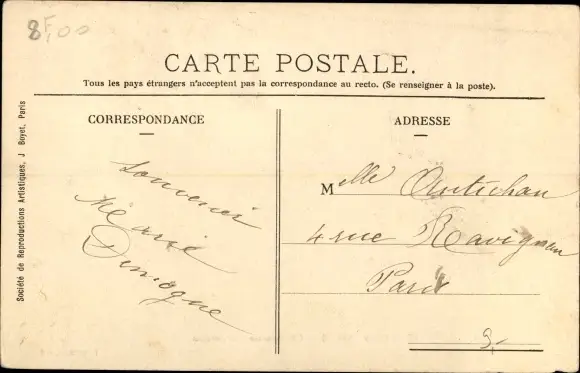 8F,00
CARTE POSTALE.
Tous les pays étrangers n'acceptent pas la correspondance au recto. (Se renseigner à la poste).
Société de Reproductions Artistiques, J Boyet, Paris
CORRESPONDANCE
Souvenir
Marie
Dimogne
ADRESSE
Melle Autichan
4 rue Ravignan
Paris
9.-